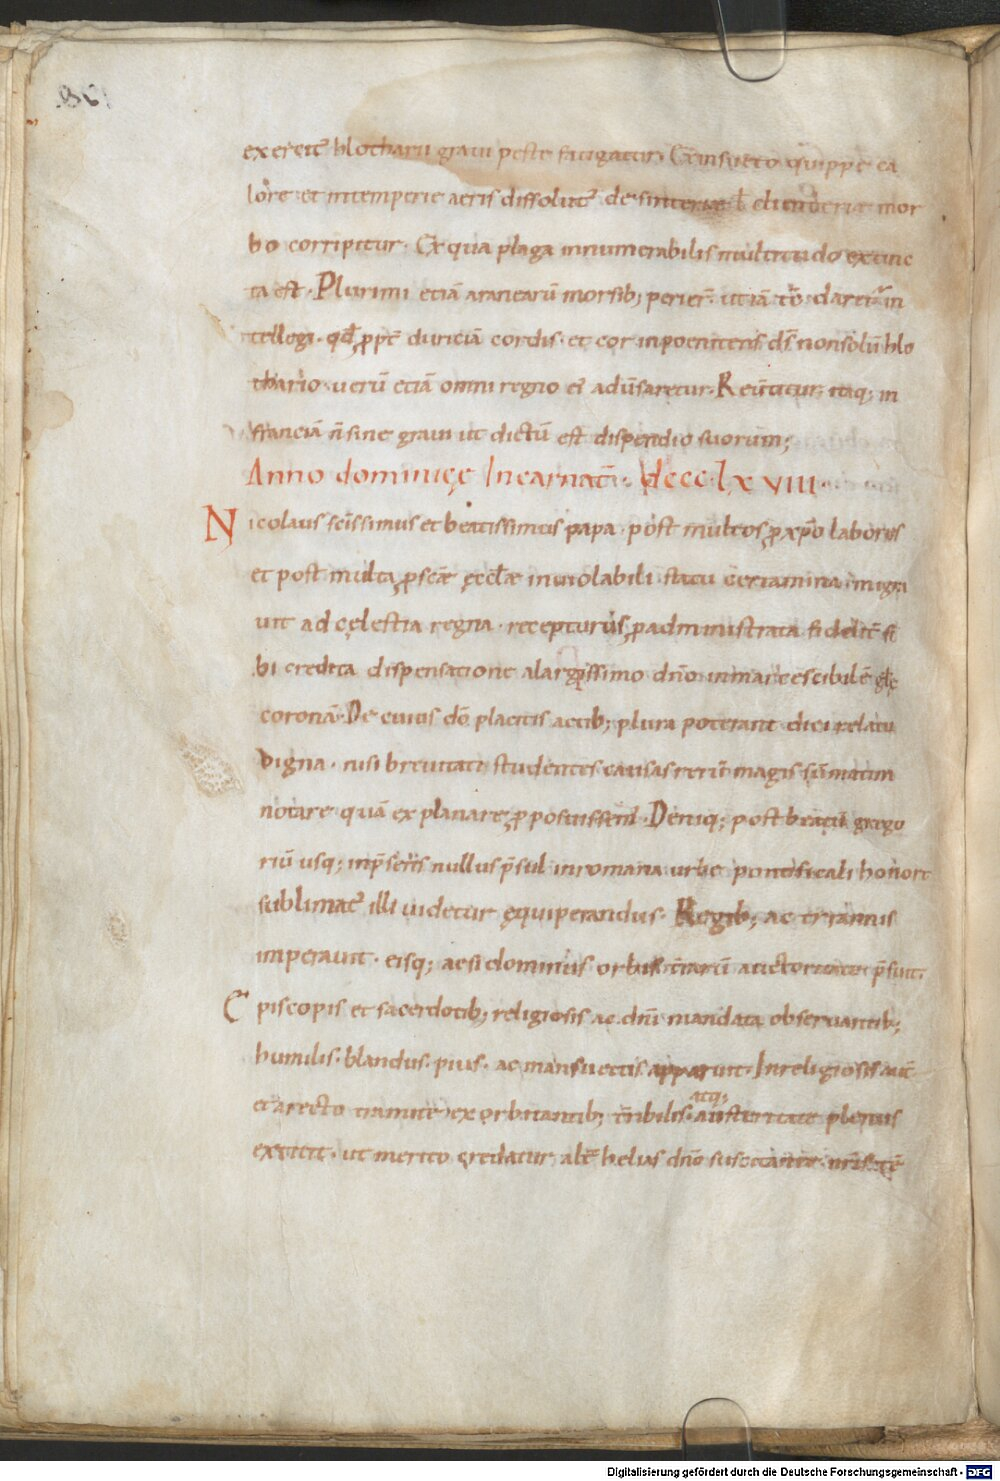 exercit̄ hlotharii graui peste fatigatur. Exinsueto quippe ca
lore et intemperie aeris dissolut̄ desinteriae ł clunderiae mor
bo corripitur. Ex qua plaga innumerabilis multitudo extinc
ta est. Plurimi etiā aranearū morsib; perier̄ ut iā daretur in
tellegi. qđ ꝓpt̄ duriciā cordis. et cor inpoenitens ds̄ nonsolū hlo
thario. uerū etiā omni regno ei aduersaretur. Reuertitur itaq; in
franciā n̄ sine graui ut dictū est dispendio suorum;
Anno dominicę Incarnat̄. dccc lxviii.
Nicolaus scīssimus et beatissimus papa. post multos ꝓ xp̄o labores
et post multa ꝓ scāe ęccłae inuiolabili statu certamina. migra
uit ad cęlestia regna. recepturus ꝓ administrata fidelit̄ si
bi credita dispensatione alargissimo dn̄o inmarcescibilē glę
coronā. De cuius dō placitis actib; plura poterant dici relatu
digna. nisi breuitati studentes causas rerū magis sūmatim
notare quā explanare ꝓposuissem. Deniq; post beatū grego
riū usq; inp̄sens nullus p̄sul inromana urbe pontificali honore
sublimat̄ illi uidetur ęquiperandus. Regib; ac tyrannis
imperauit. eisq; acsi dominus orbis t̄rarū auctoritate p̄fuit.
Episcopis et sacerdotib; religiosis ac dn̄i mandata obseruantib;
humilis. blandus. pius. ac mansuetus apparuit. Inreligiosis aut̄
et arecto tramite exorbitantib; t̄ribilis. atq; austeritate plenus
extitit. ut merito credatur alt̄ helias dn̄o suscitante